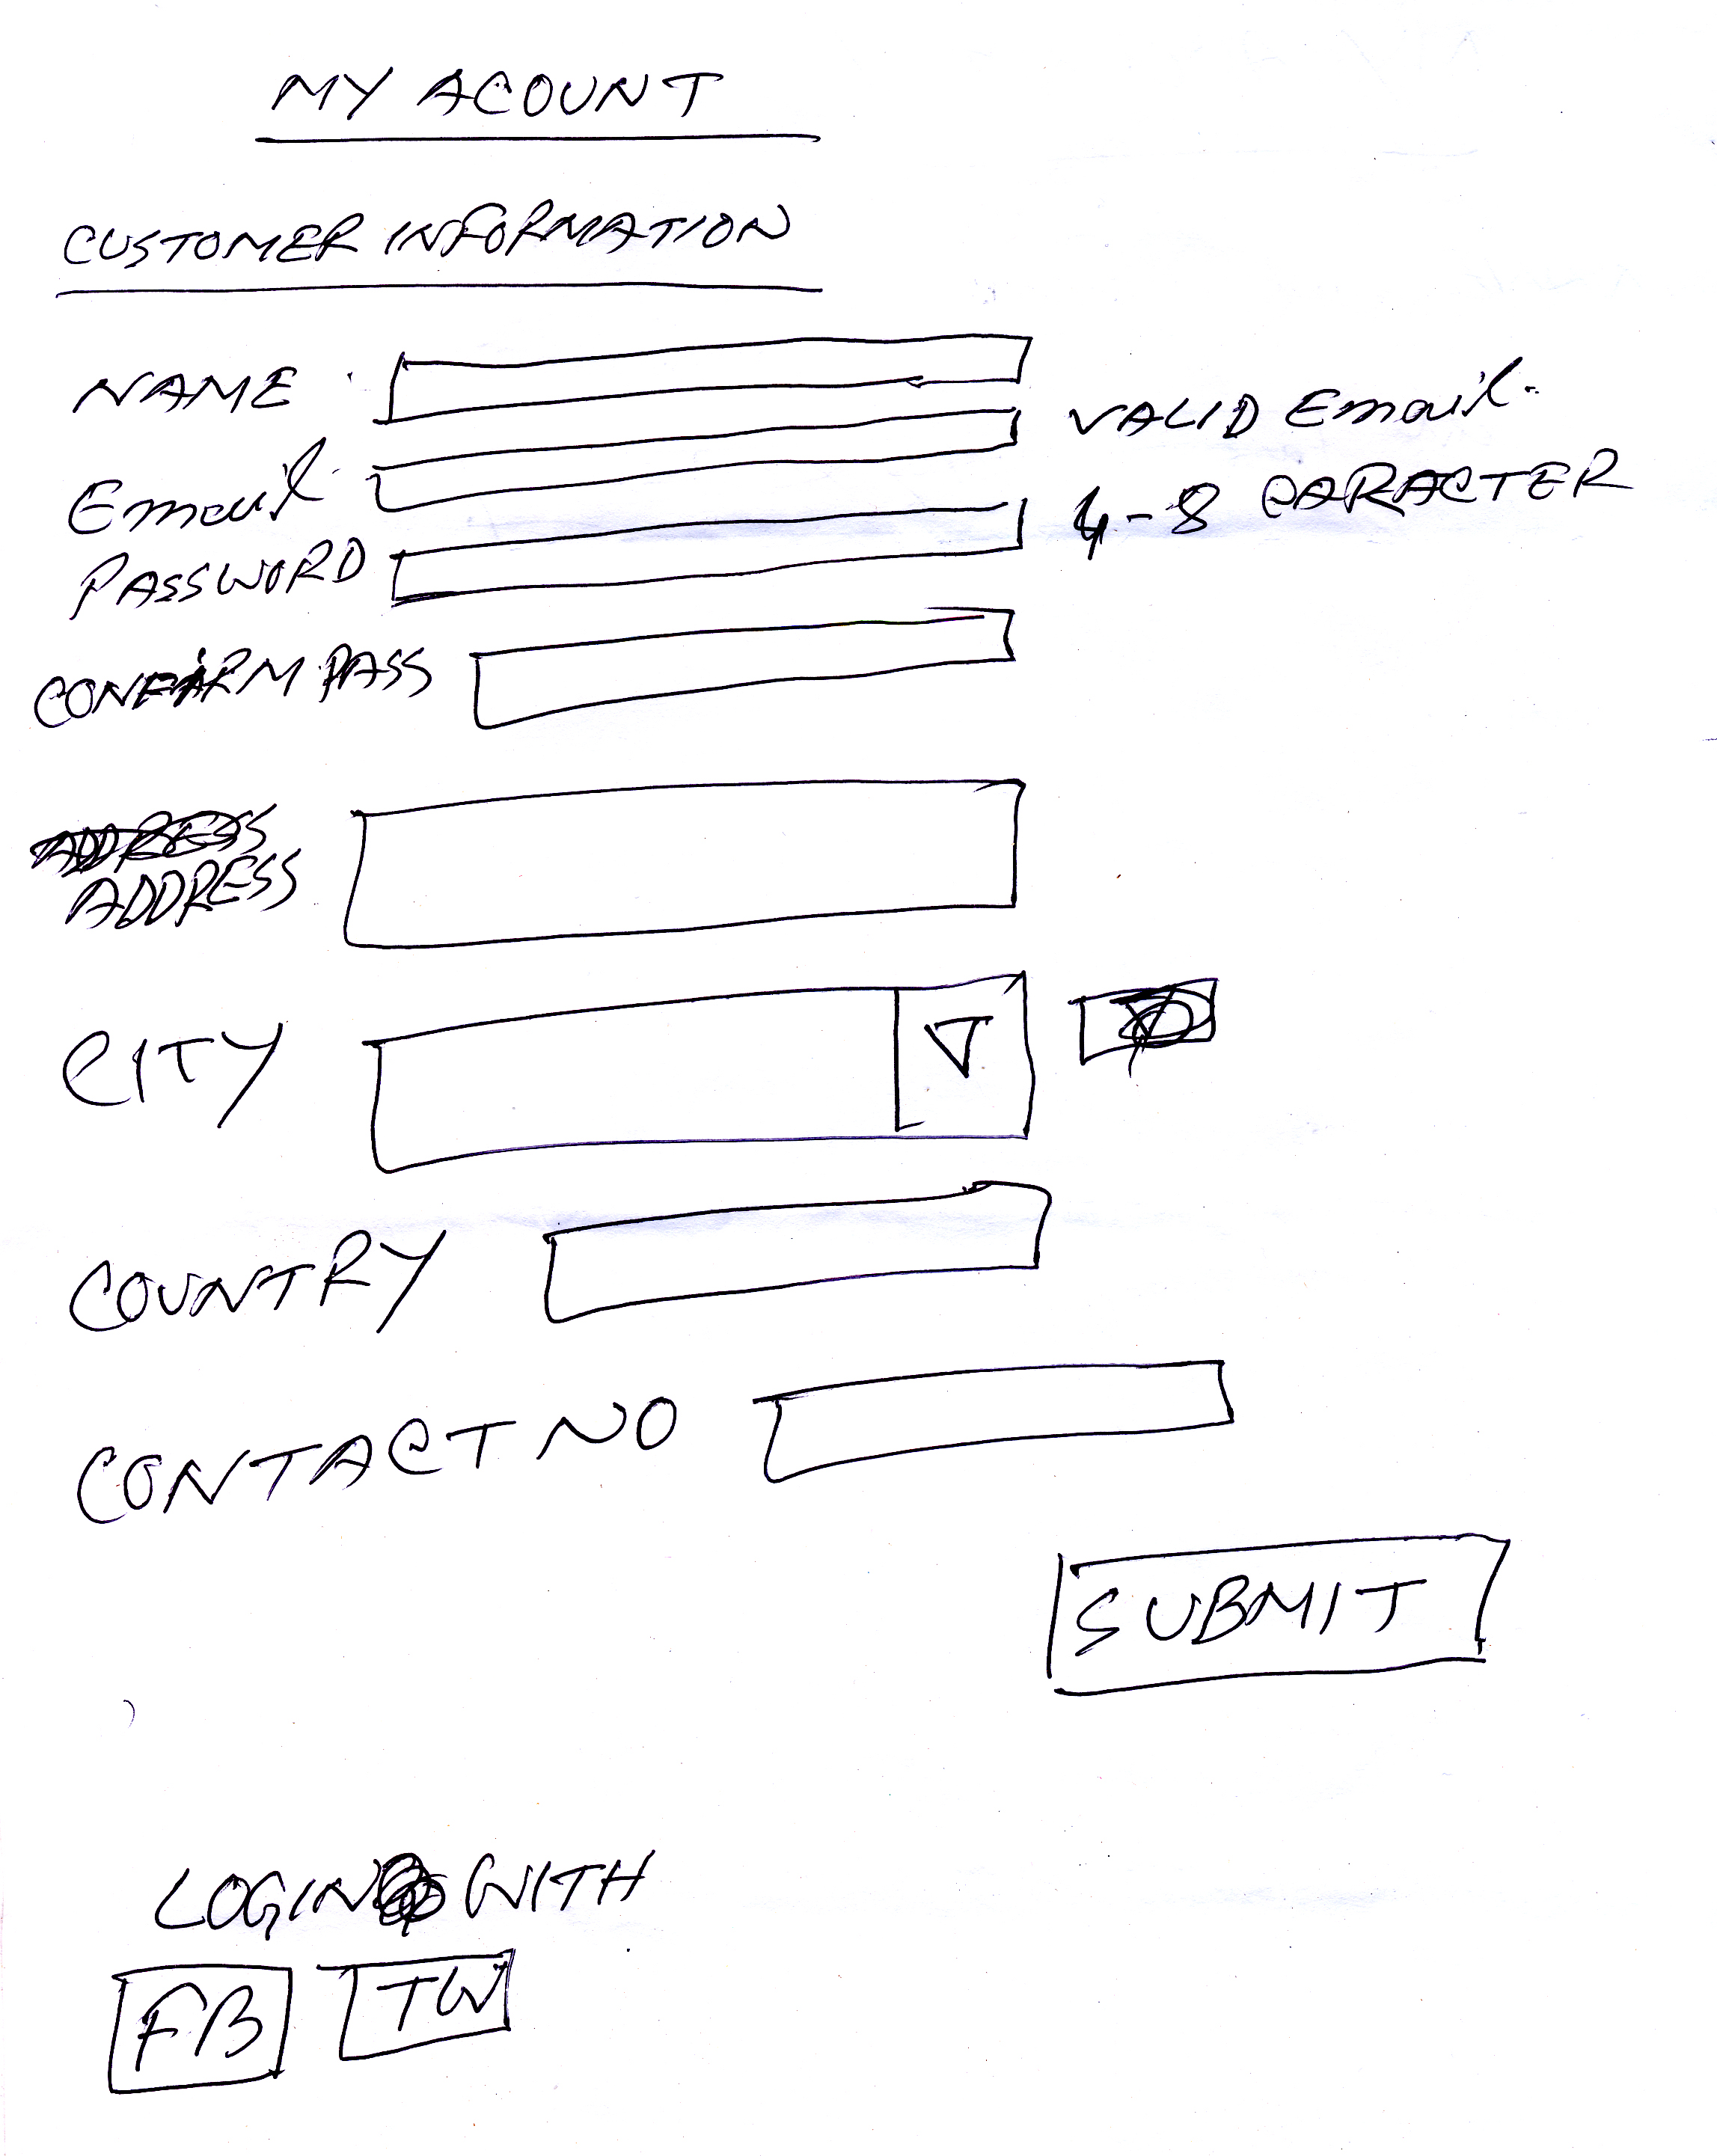 MY ACOUNT
CUSTOMER INFORMATION
NAME
Email
VALID Email.
PASSWORD
4-8 CARACTER
CONFIRM PASS
ADDRESS
ADDRESS
CITY
COUNTRY
CONTACT NO
SUBMIT
LOGIN WITH
FB TW